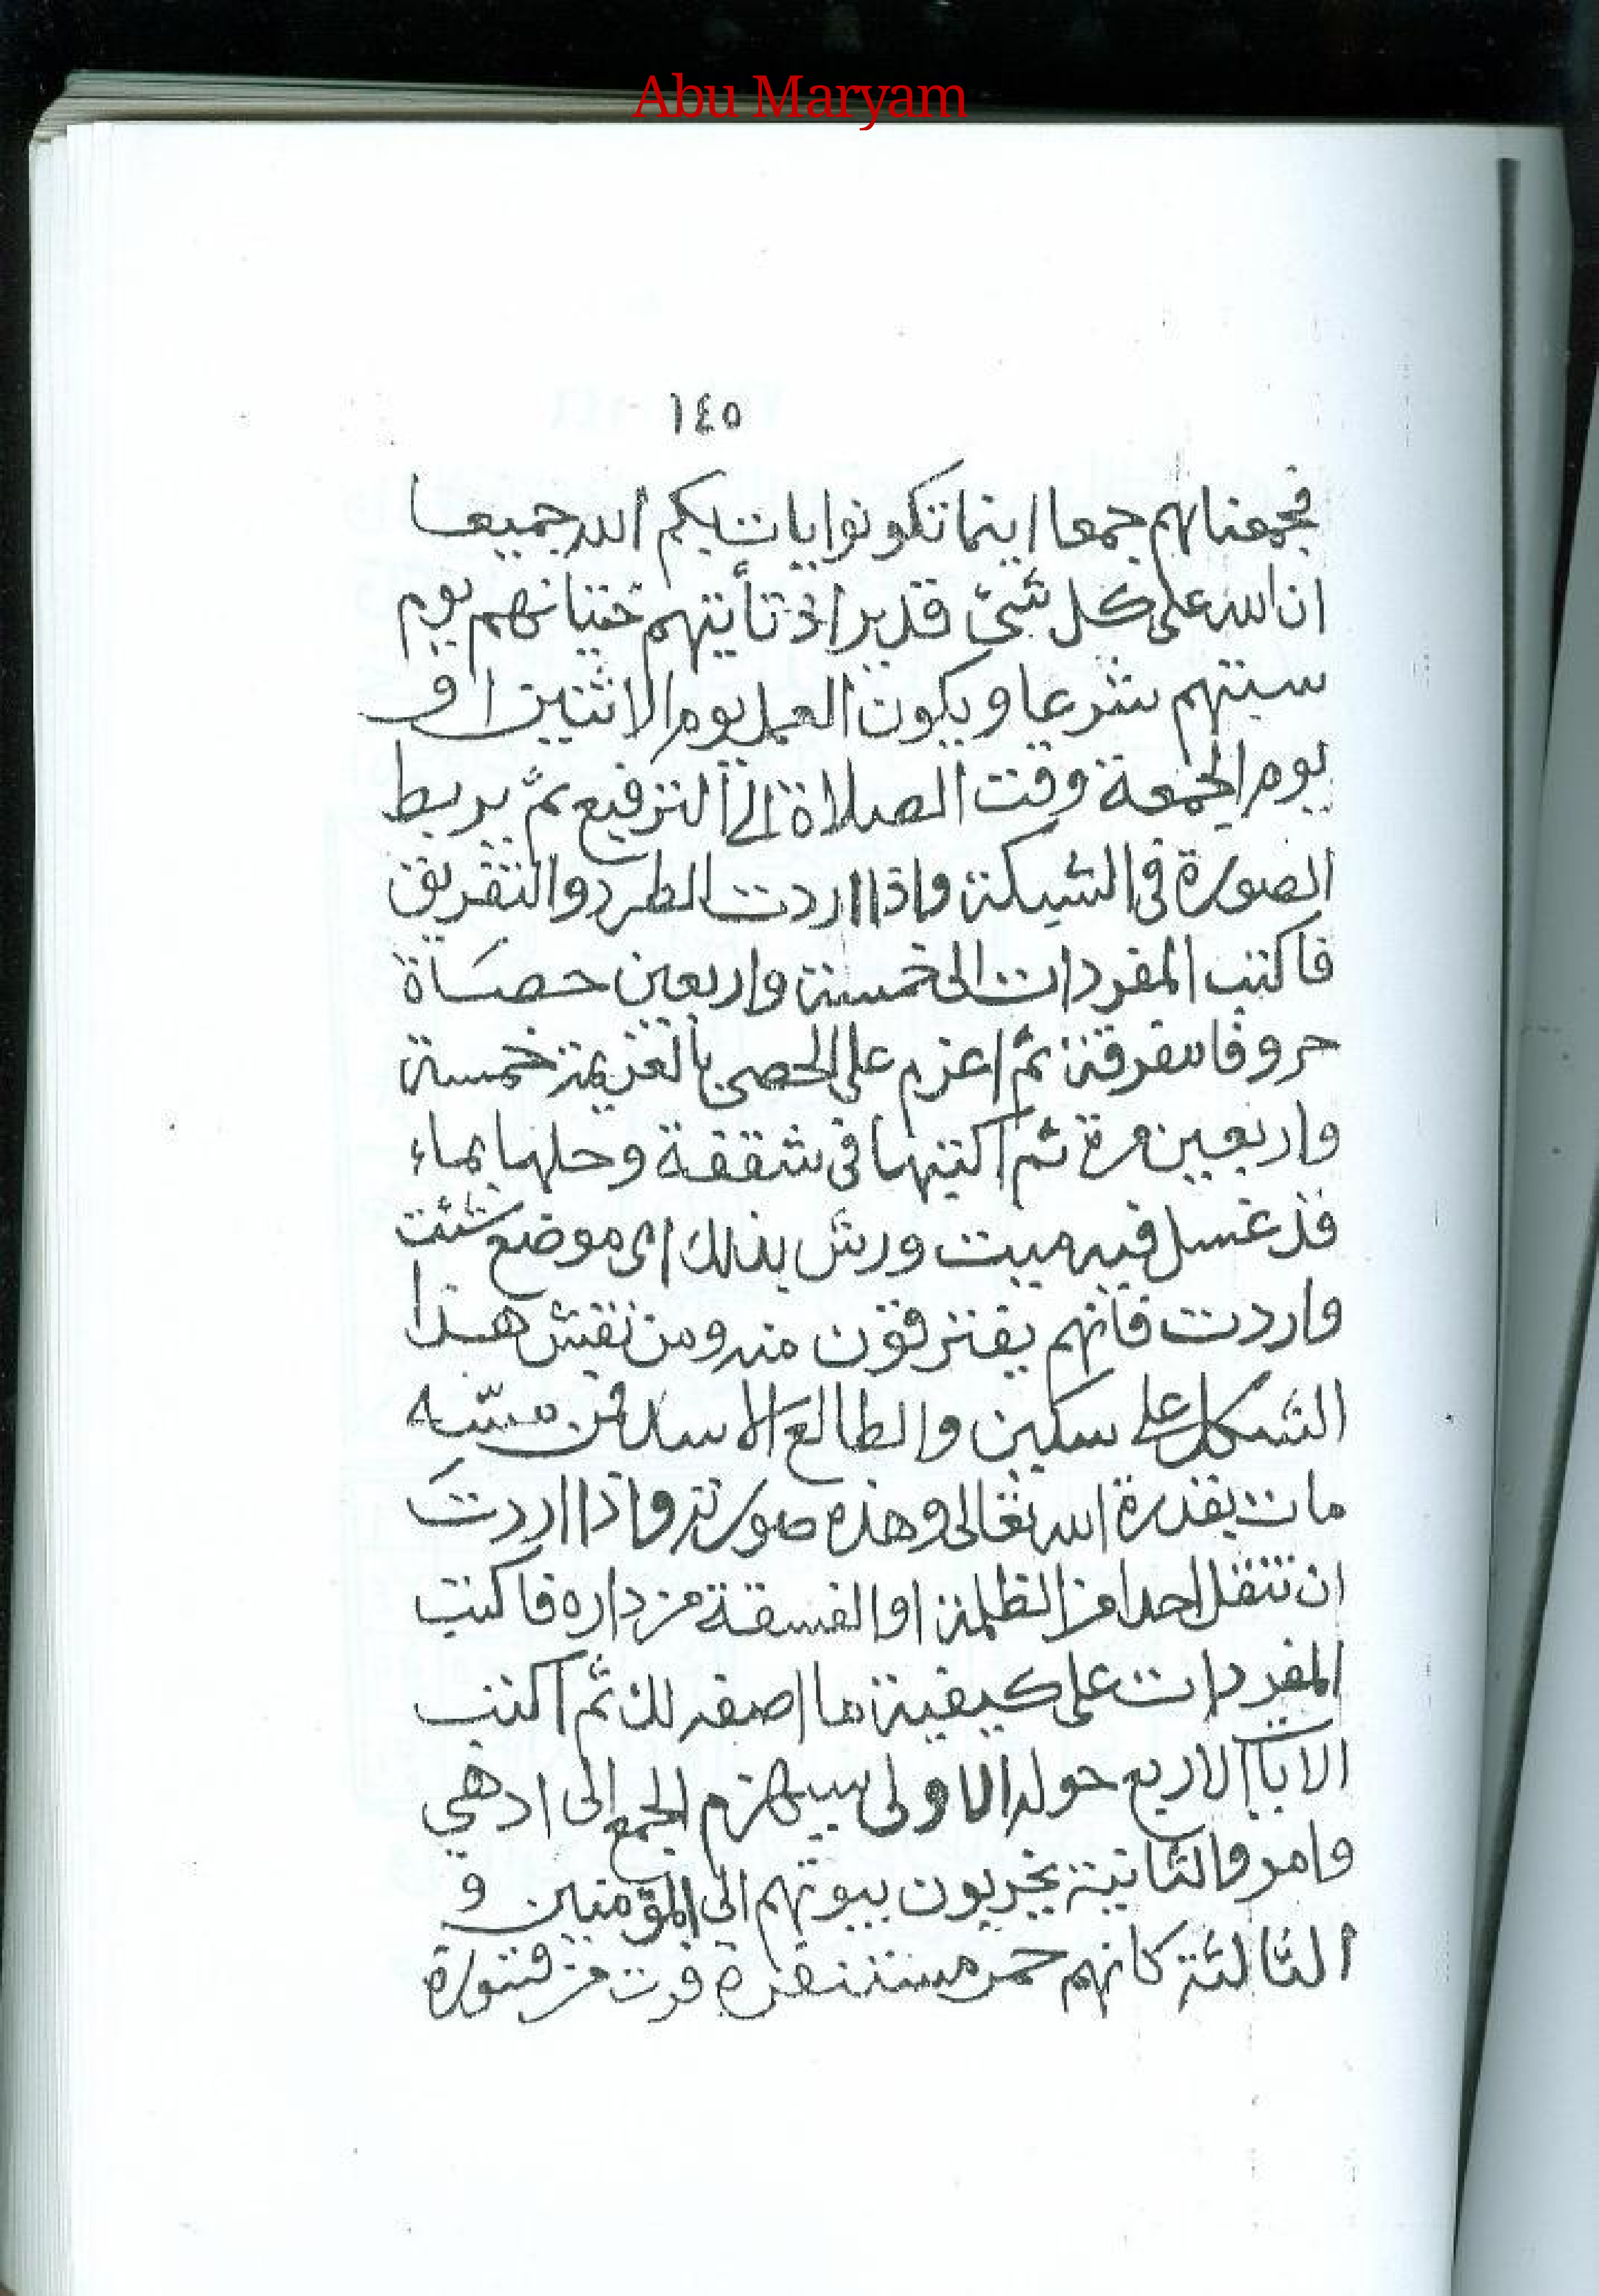 Abu Maryam
١٤٥
فجمعناهم جمعا اينما تكونوا يات بكم الله جميعا
ان الله على كل شئ قدير اذ تأتيهم حيتانهم يوم
سبتهم شرعا ويكون العمل يوم الاثنين او
يوم الجمعة وقت الصلاة الى الترفيع ثم يربط
الصورة فى الشبكة واذا اردت الطرد والتفريق
فاكتب المفردات الى خمسة واربعين حصاة
حروفا مفرقة ثم اعزم على الحصى بالعزيمة خمسة
واربعين مرة ثم اكتبها فى شقفة وحلها بماء
قد غسل فيه ميت ورش بذلك اى موضع شئت
واردت فانهم يفترقون منه ومن نقش هذا
الشكل على سكين والطالع الاسد فمن مسه
مات بقدرة الله تعالى وهذه صورته واذا اردت
ان تنقل احدا من الظلمة او الفسقة من داره فاكتب
المفردات على كيفية ما اصفه لك ثم اكتب
الايات الاربع حوله الاولى سيهزم الجمع الى ادهي
وامر والثانية يخربون بيوتهم الى المؤمنين و
الثالثة كانهم حمر مستنفرة فرت من قسورة